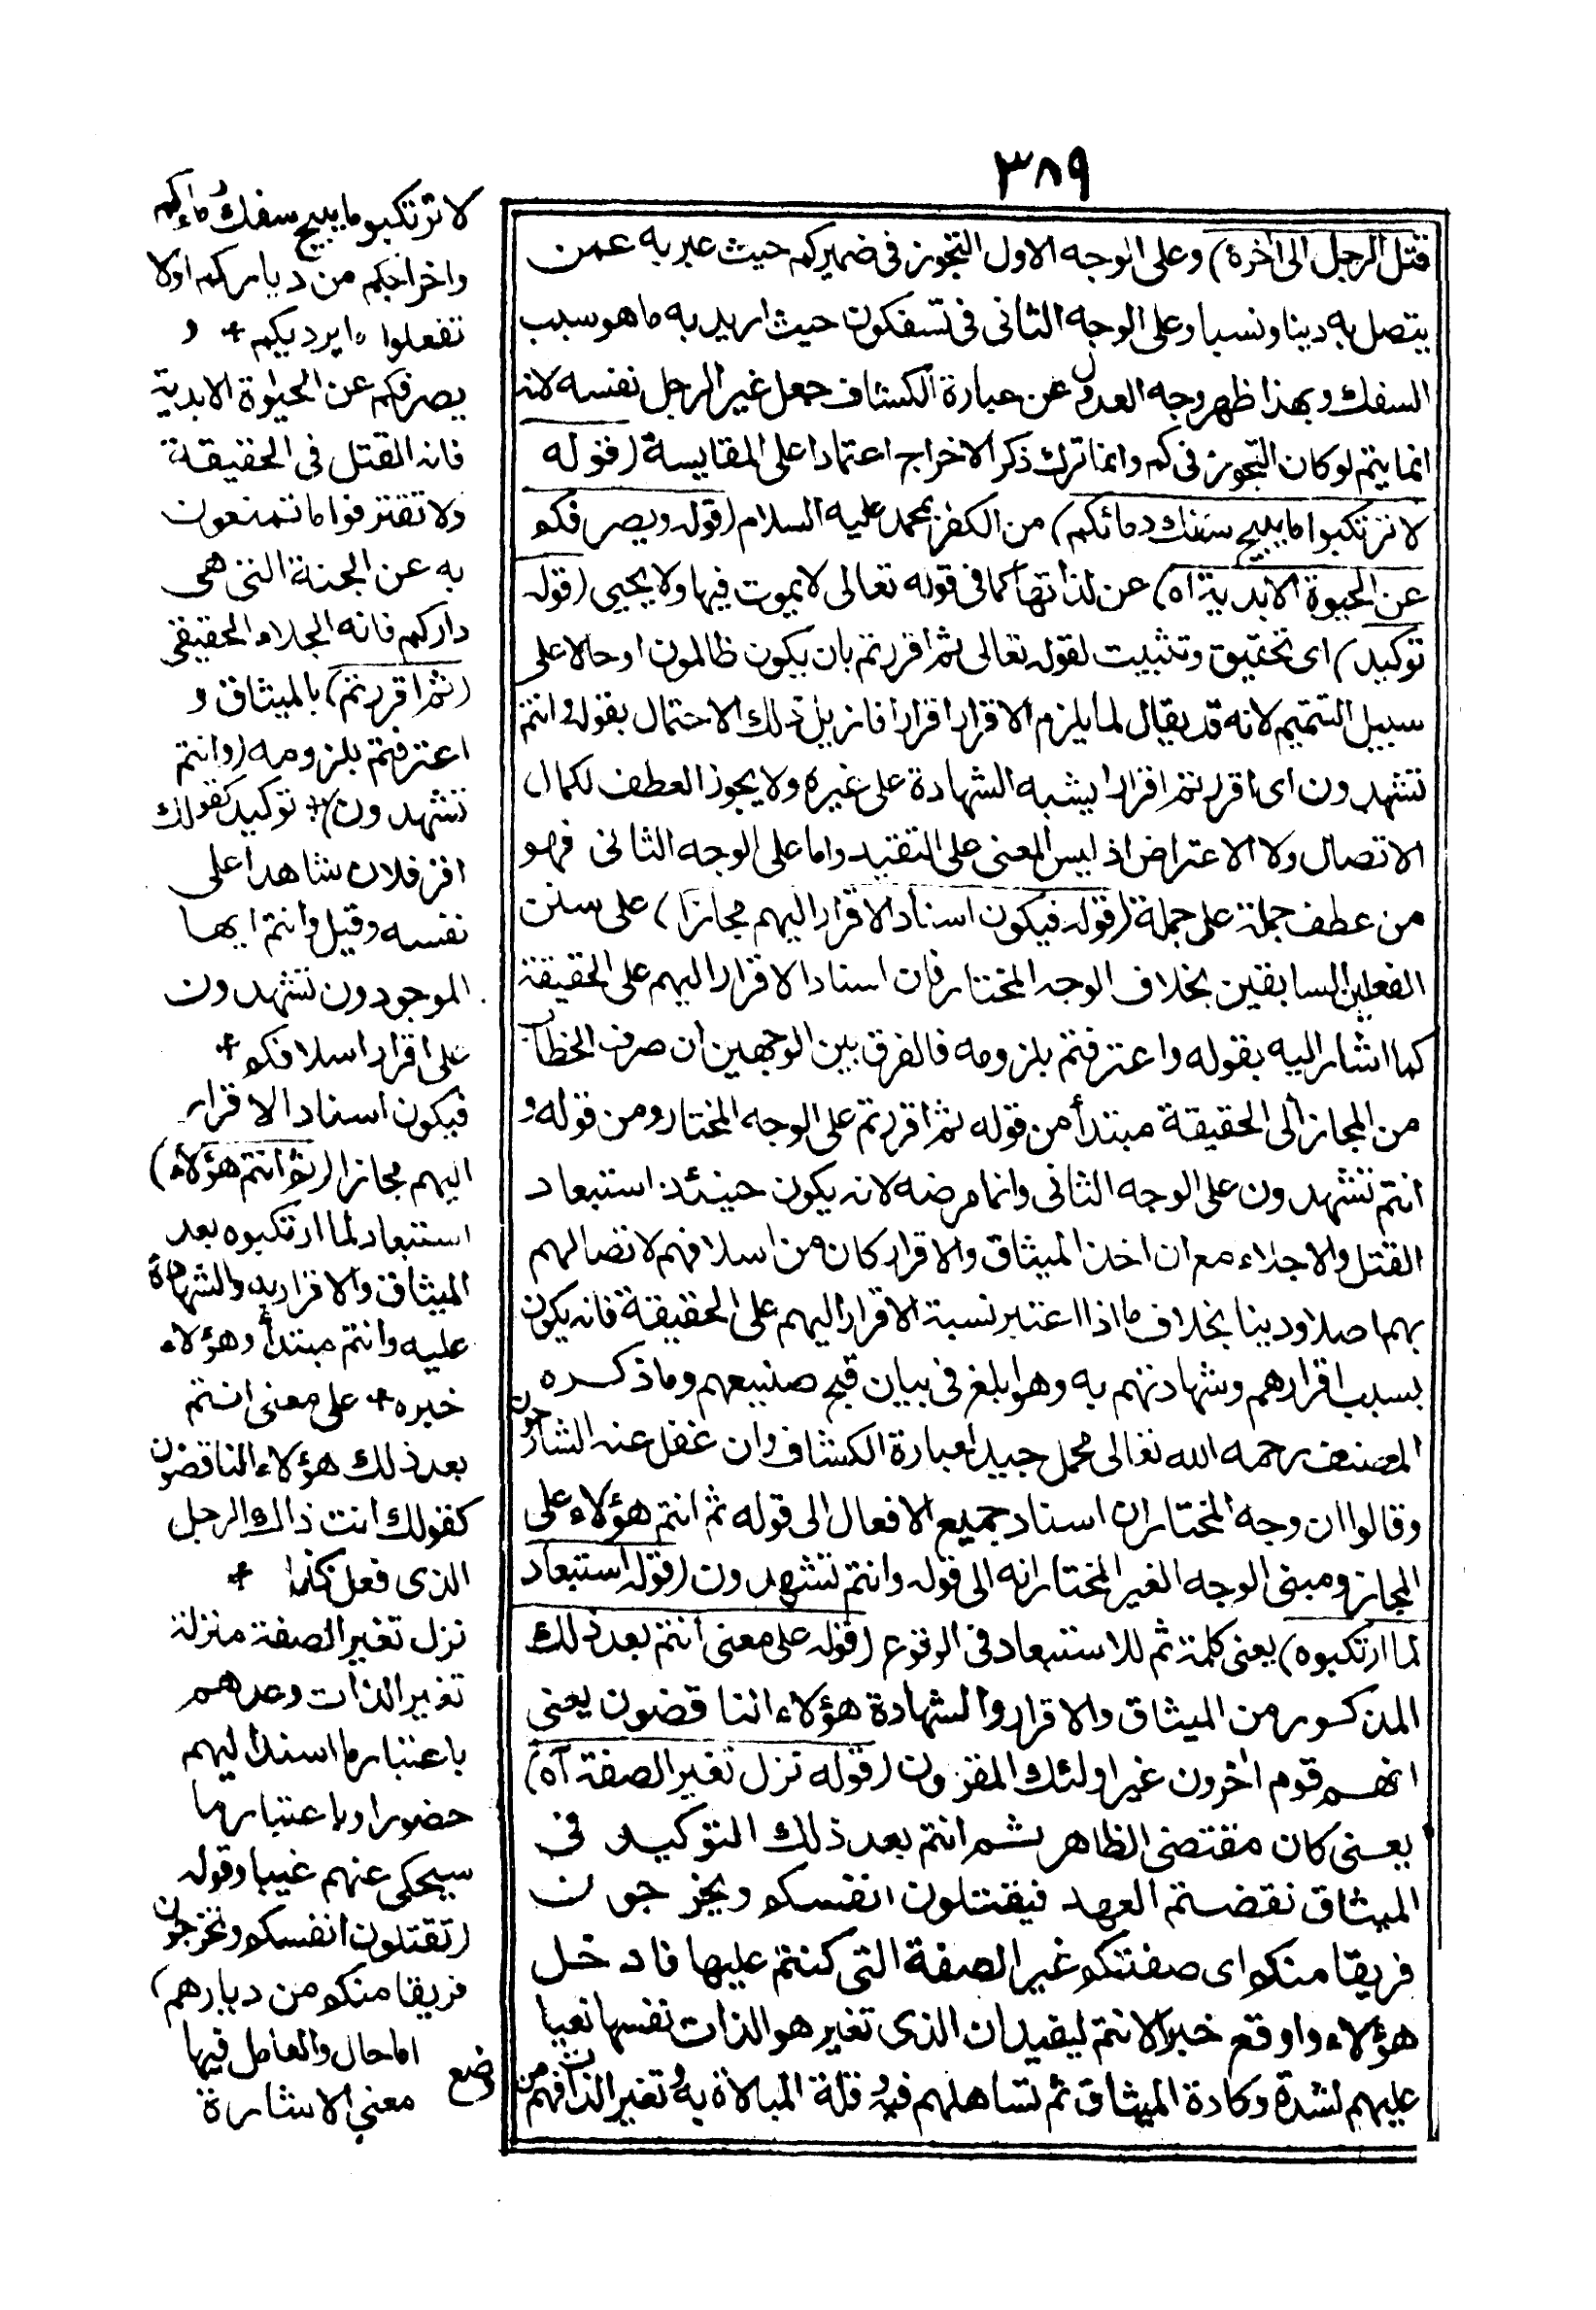 ٣٨٩
قتل الرجل الى اخره) وعلى الوجه الاول التجوز فى ضميركم حيث عبر به عمن
يتصل به دينا ونسبا وعلى الوجه الثانى فى تسفكون حيث اريد به ما هو سبب
السفك وبهذا ظهر وجه العدول عن عبارة الكشاف جعل غير الرجل نفسه لانه
انما يتم لو كان التجوز فى كم وانما ترك ذكر الاخراج اعتمادا على المقايسة (قوله
لا ترتكبوا ما يبيح سفك دمائكم) من الكفر بمحمد عليه السلام (قوله ويصرفكم
عن الحيوة الابدية اه) عن لذاتها كما فى قوله تعالى لا يموت فيها ولا يحيى (قوله
توكيد) اى تحقيق وتثبيت لقوله تعالى ثم اقررتم بان يكون ظالمون او حالا على
سبيل التتميم لانه قد يقال لما يلزم الاقرار اقرارا فازيل ذلك الاحتمال بقوله وانتم
تشهدون اى اقررتم اقرارا يشبه الشهادة على غيره ولا يجوز العطف لكمال
الاتصال ولا الاعتراض اذ ليس المعنى على التقييد واما على الوجه الثانى فهو
من عطف جملة على جملة (قوله فيكون اسناد الاقرار اليهم مجازا) على سنن
الفعلين السابقين بخلاف الوجه المختار فان اسناد الاقرار اليهم على الحقيقة
كما اشار اليه بقوله واعترفتم بلزومه فالفرق بين الوجهين ان صرف الخطاب
من المجاز الى الحقيقة مبتدأ من قوله ثم اقررتم على الوجه المختار ومن قوله و
انتم تشهدون على الوجه الثانى وانما مرضه لانه يكون حينئذ استبعاد
القتل والاجلاء مع ان اخذ الميثاق والاقرار كان من اسلافهم لاتصالهم
بهم اصلا ودينا بخلاف ما اذا اعتبر نسبة الاقرار اليهم على الحقيقة فانه يكون
بسبب اقرارهم وشهادتهم به وهو ابلغ فى بيان قبح صنيعهم وما ذكره
المصنف رحمه الله تعالى محمل جيد لعبارة الكشاف وان غفل عنه الشارحون
وقالوا ان وجه المختار ان اسناد جميع الافعال الى قوله ثم انتم هؤلاء على
المجاز ومبنى الوجه الغير المختار انه الى قوله وانتم تشهدون (قوله استبعاد
لما ارتكبوه) يعنى كلمة ثم للاستبعاد فى الوقوع (قوله على معنى انتم بعد ذلك
المذكور من الميثاق والاقرار والشهادة هؤلاء الناقضون يعنى
انهم قوم اخرون غير اولئك المقرون (قوله نزل تغير الصفة آه)
يعنى كان مقتضى الظاهر ثم انتم بعد ذلك التوكيد فى
الميثاق نقضتم العهد فيقتلون انفسكم ويخرجون
فريقا منكم اى صفتكم غير الصفة التى كنتم عليها فادخل
هؤلاء واوقع خبر الانتم ليفيد ان الذى تغير هو الذات نفسها نعيا
عليهم لشدة وكادة الميثاق ثم تساهلهم فيه وقلة المبالاة به وتغير الذات فهم من
وضع
لا ترتكبوا ما يبيح سفك دماءكم
واخراجكم من دياركم اولا
تفعلوا ما يرديكم + و
يصرفكم عن الحيوة الابدية
فانه القتل فى الحقيقة
ولا تقترفوا ما تمنعون
به عن الجنة التى هى
داركم فانه الجلاء الحقيقى
(ثم اقررتم) بالميثاق و
اعترفتم بلزومه (وانتم
تشهدون)+ توكيد كقولك
اقر فلان شاهدا على
نفسه وقيل وانتم ايها
الموجودون تشهدون
على اقرار اسلافكم +
فيكون اسناد الاقرار
اليهم مجازا (ثم انتم هؤلاء)
استبعاد لما ارتكبوه بعد
الميثاق والاقرار به والشهادة
عليه وانتم مبتدأ وهؤلاء
خبره + على معنى انتم
بعد ذلك هؤلاء الناقضون
كقولك انت ذاك الرجل
الذى فعل كذا +
نزل تغير الصفة منزلة
تغير الذات وعدهم
باعتبار ما اسند اليهم
حضورا وباعتبار ما
سيحكى عنهم غيبا وقوله
(تقتلون انفسكم وتخرجون
فريقا منكم من ديارهم)
اما حال والعامل فيها
معنى الاشارة